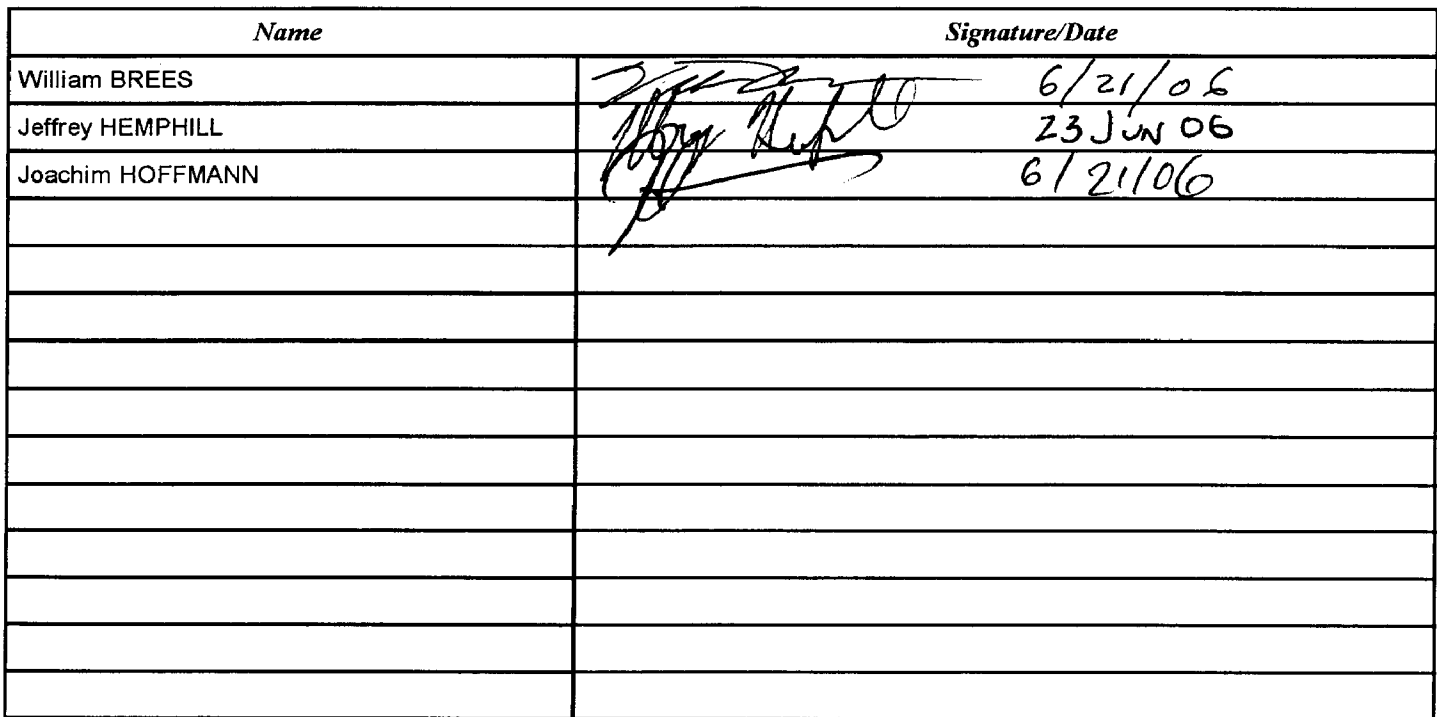 Name Signature/Date
William BREES 6/21/06
Jeffrey HEMPHILL 23 JUN 06
Joachim HOFFMANN 6/21/06